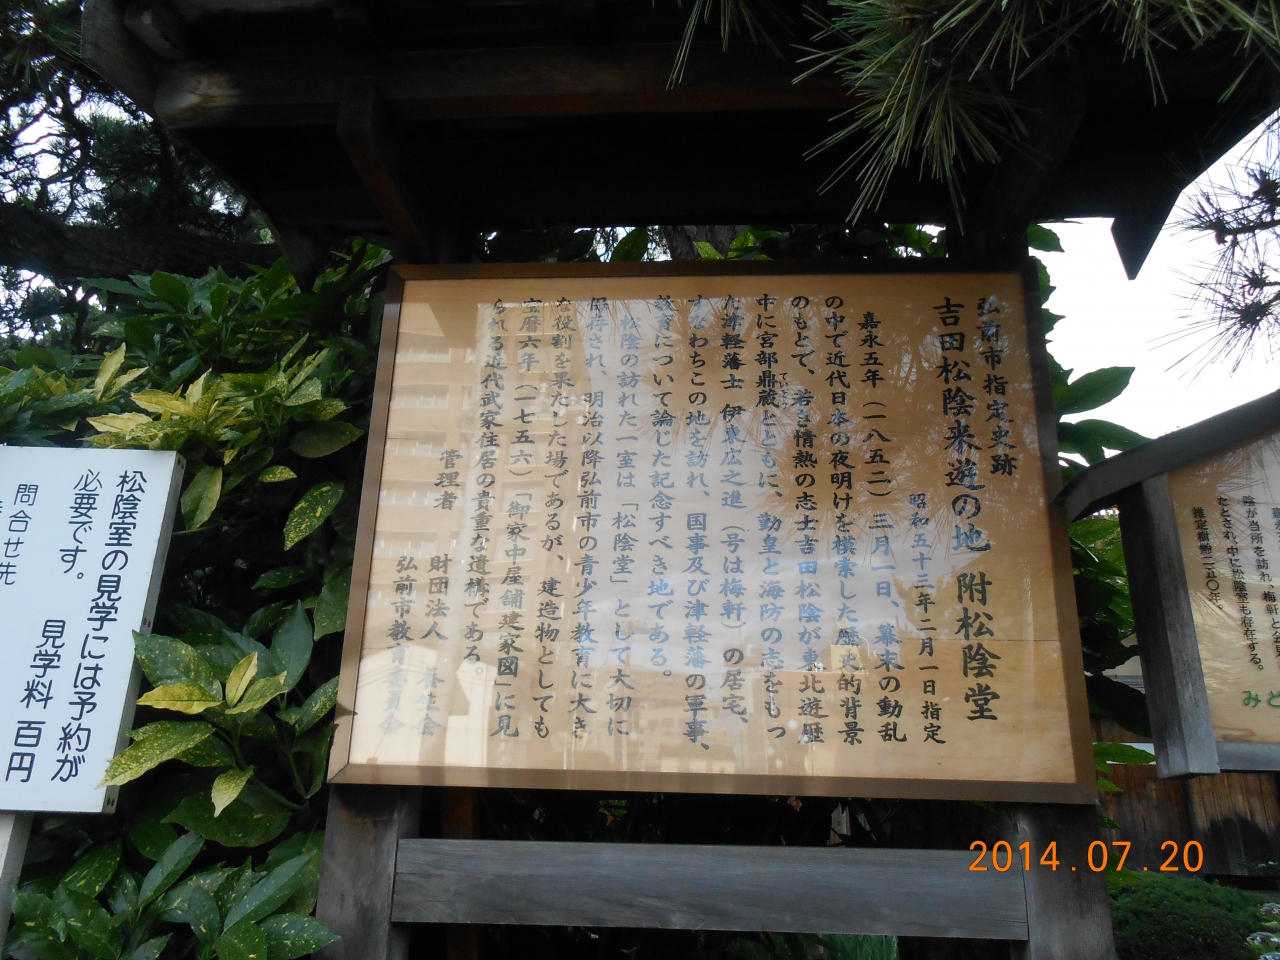 弘前市指定史跡
吉田松陰来遊の地 附松陰堂
昭和五十三年二月一日指定
嘉永五年(一八五二)三月一日、幕末の動乱
の中で近代日本の夜明けを模索した歴史的背景
のもとで、若き情熱の志士吉田松陰が東北遊歴
中に宮部鼎蔵とともに、勤皇と海防の志をもっ
た津軽藩士 伊東広之進(号は梅軒)の居宅、
すなわちこの地を訪れ、国事及び津軽藩の軍事、
教育について論じた記念すべき地である。
松陰の訪れた一室は「松陰堂」として大切に
保持され、明治以降弘前市の青少年教育に大き
な役割を果たした場であるが、建造物としても
宝暦六年(一七五六)「御家中屋舗建家図」に見
られる近代武家住居の貴重な遺構である。
管理者 財団法人 養生会
弘前市教育委員会
松陰室の見学には予約が
必要です。
見学料 百円
問合せ先
陰が当所を訪れ、梅軒と
たとされ、中に松陰室も存在する。
推定樹齢二五〇年。
みど
2014.07.20